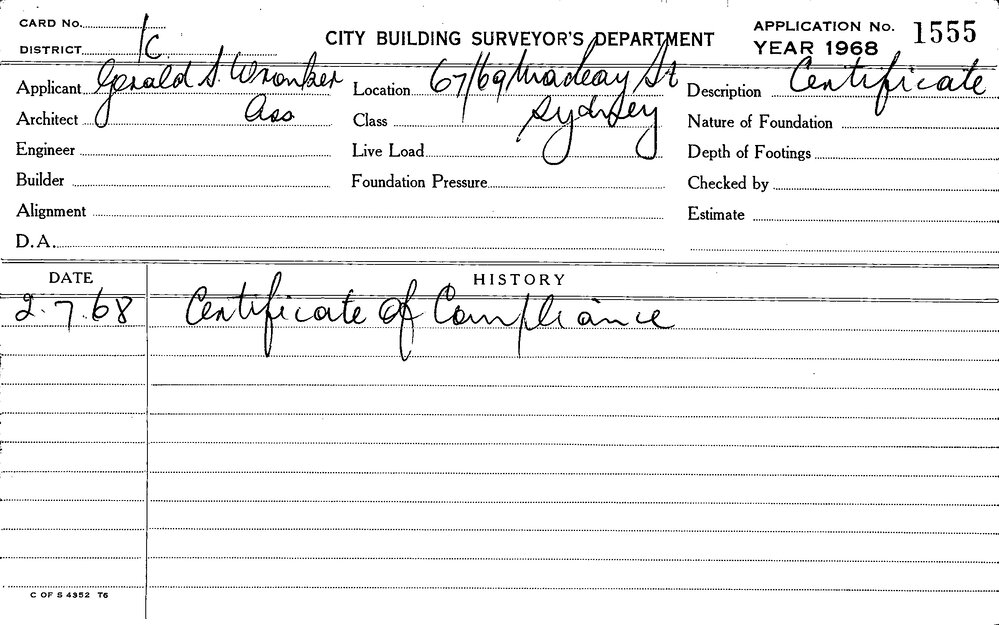 CARD No.
DISTRICT 1C
CITY BUILDING SURVEYOR'S DEPARTMENT
APPLICATION No. 1555
YEAR 1968
Applicant Gerald S. Wronker
Ass
Location 67/69 Macleay St
Sydney
Description Certificate
Architect
Class
Nature of Foundation
Engineer
Live Load
Depth of Footings
Builder
Foundation Pressure
Checked by
Alignment
Estimate
D.A.
DATE HISTORY
2.7.68 Certificate of Compliance
C OF S 4352 T6